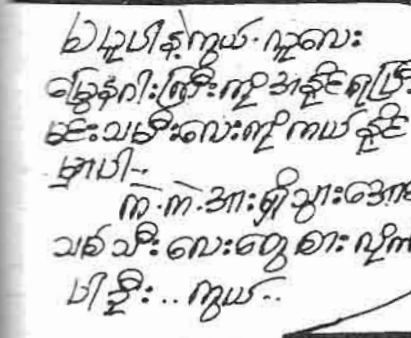 မယူပါနဲ့ကွယ်. လူလေး
မြွေနဂါးကြီးကို အနိုင်ရပြီး
မင်းသမီးလေးကို ကယ်နိုင်
မှာပါ..
ကဲ.ကဲ.အားရှိသွားအောင်
သစ်သီးလေးတွေ စားလိုက်
ပါဦး..ကွယ်..